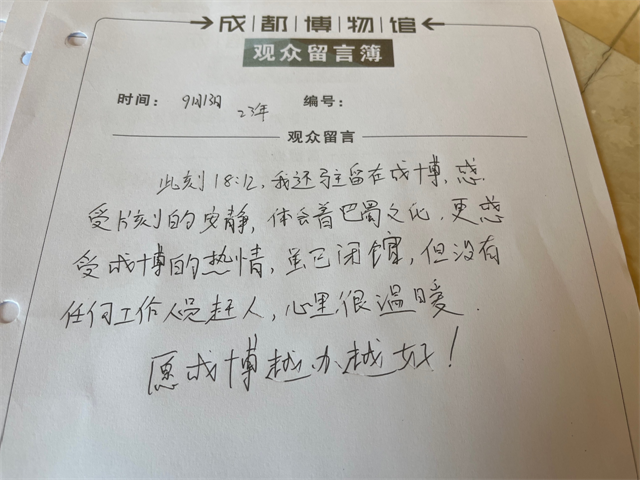 成都博物馆
观众留言簿
时间: 9月13日 23年 编号:
观众留言
此刻18:12,我还驻留在成博,感
受片刻的安静,体会着巴蜀文化,更感
受成博的热情,虽已闭馆,但没有
任何工作人员赶人,心里很温暖.
愿成博越办越好!